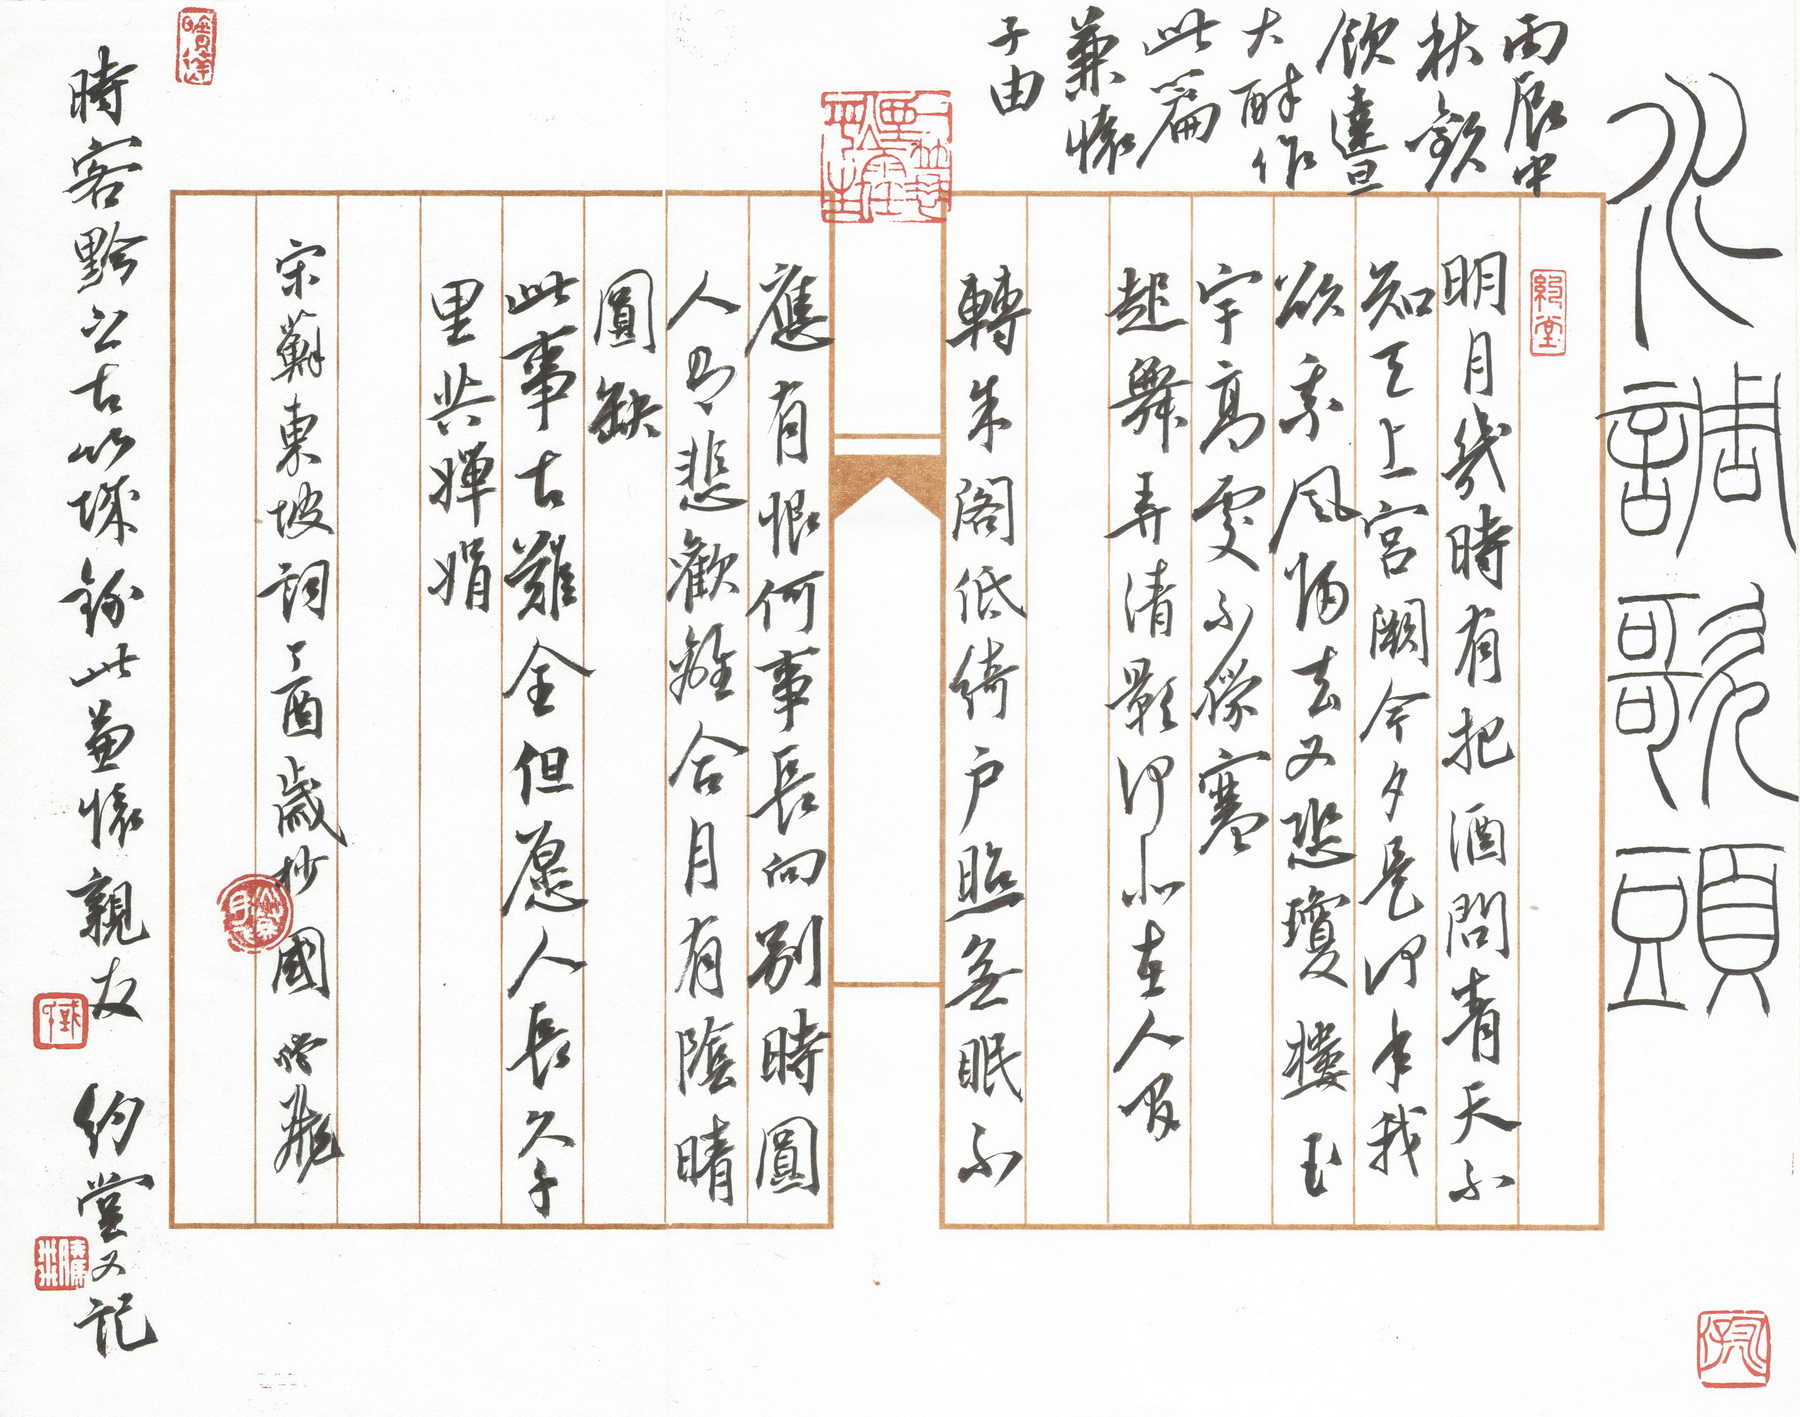 水調歌頭
丙辰中
秋歡
飲達旦
大醉作
此篇
兼懷
子由
約堂
明月幾時有把酒問青天不
知天上宮闕今夕是何年我
欲乘風歸去又恐瓊樓玉
宇高處不勝寒
起舞弄清影何似在人間
轉朱閣低綺戶照無眠不
應有恨何事長向別時圓
人有悲歡離合月有陰晴
圓缺
此事古難全但愿人長久千
里共嬋娟
宋蘇東坡詞丁酉歲抄國
時客黔之古筑城鈔此兼懷親友 約堂又記